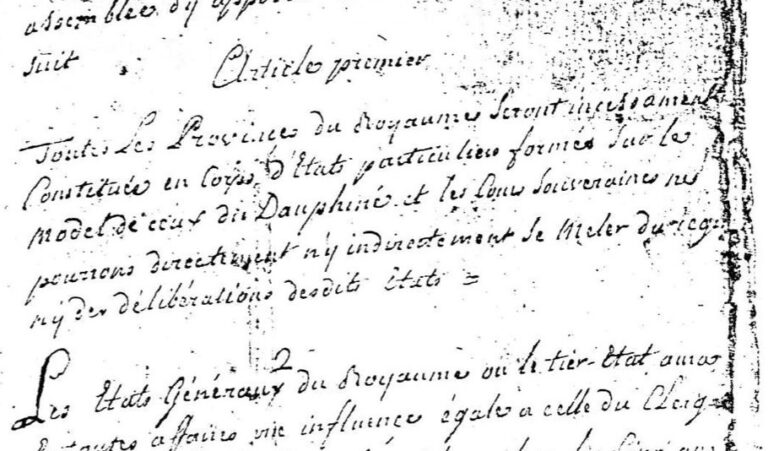 assemblée
suit. Article premier
Toutes les Provinces du Royaume seront incessament
Constituée en Corps d'États particuliers formés sur le
model de ceux du Dauphiné. et les Cours Souveraines ne
pourrons directement n'y indirectement se meler du
n'y des délibérations desdits Etats =
2
Les Etats Généraux du Royaume ou le tier-Etat aura
toutes affaires une influence égale à celle du Clerg